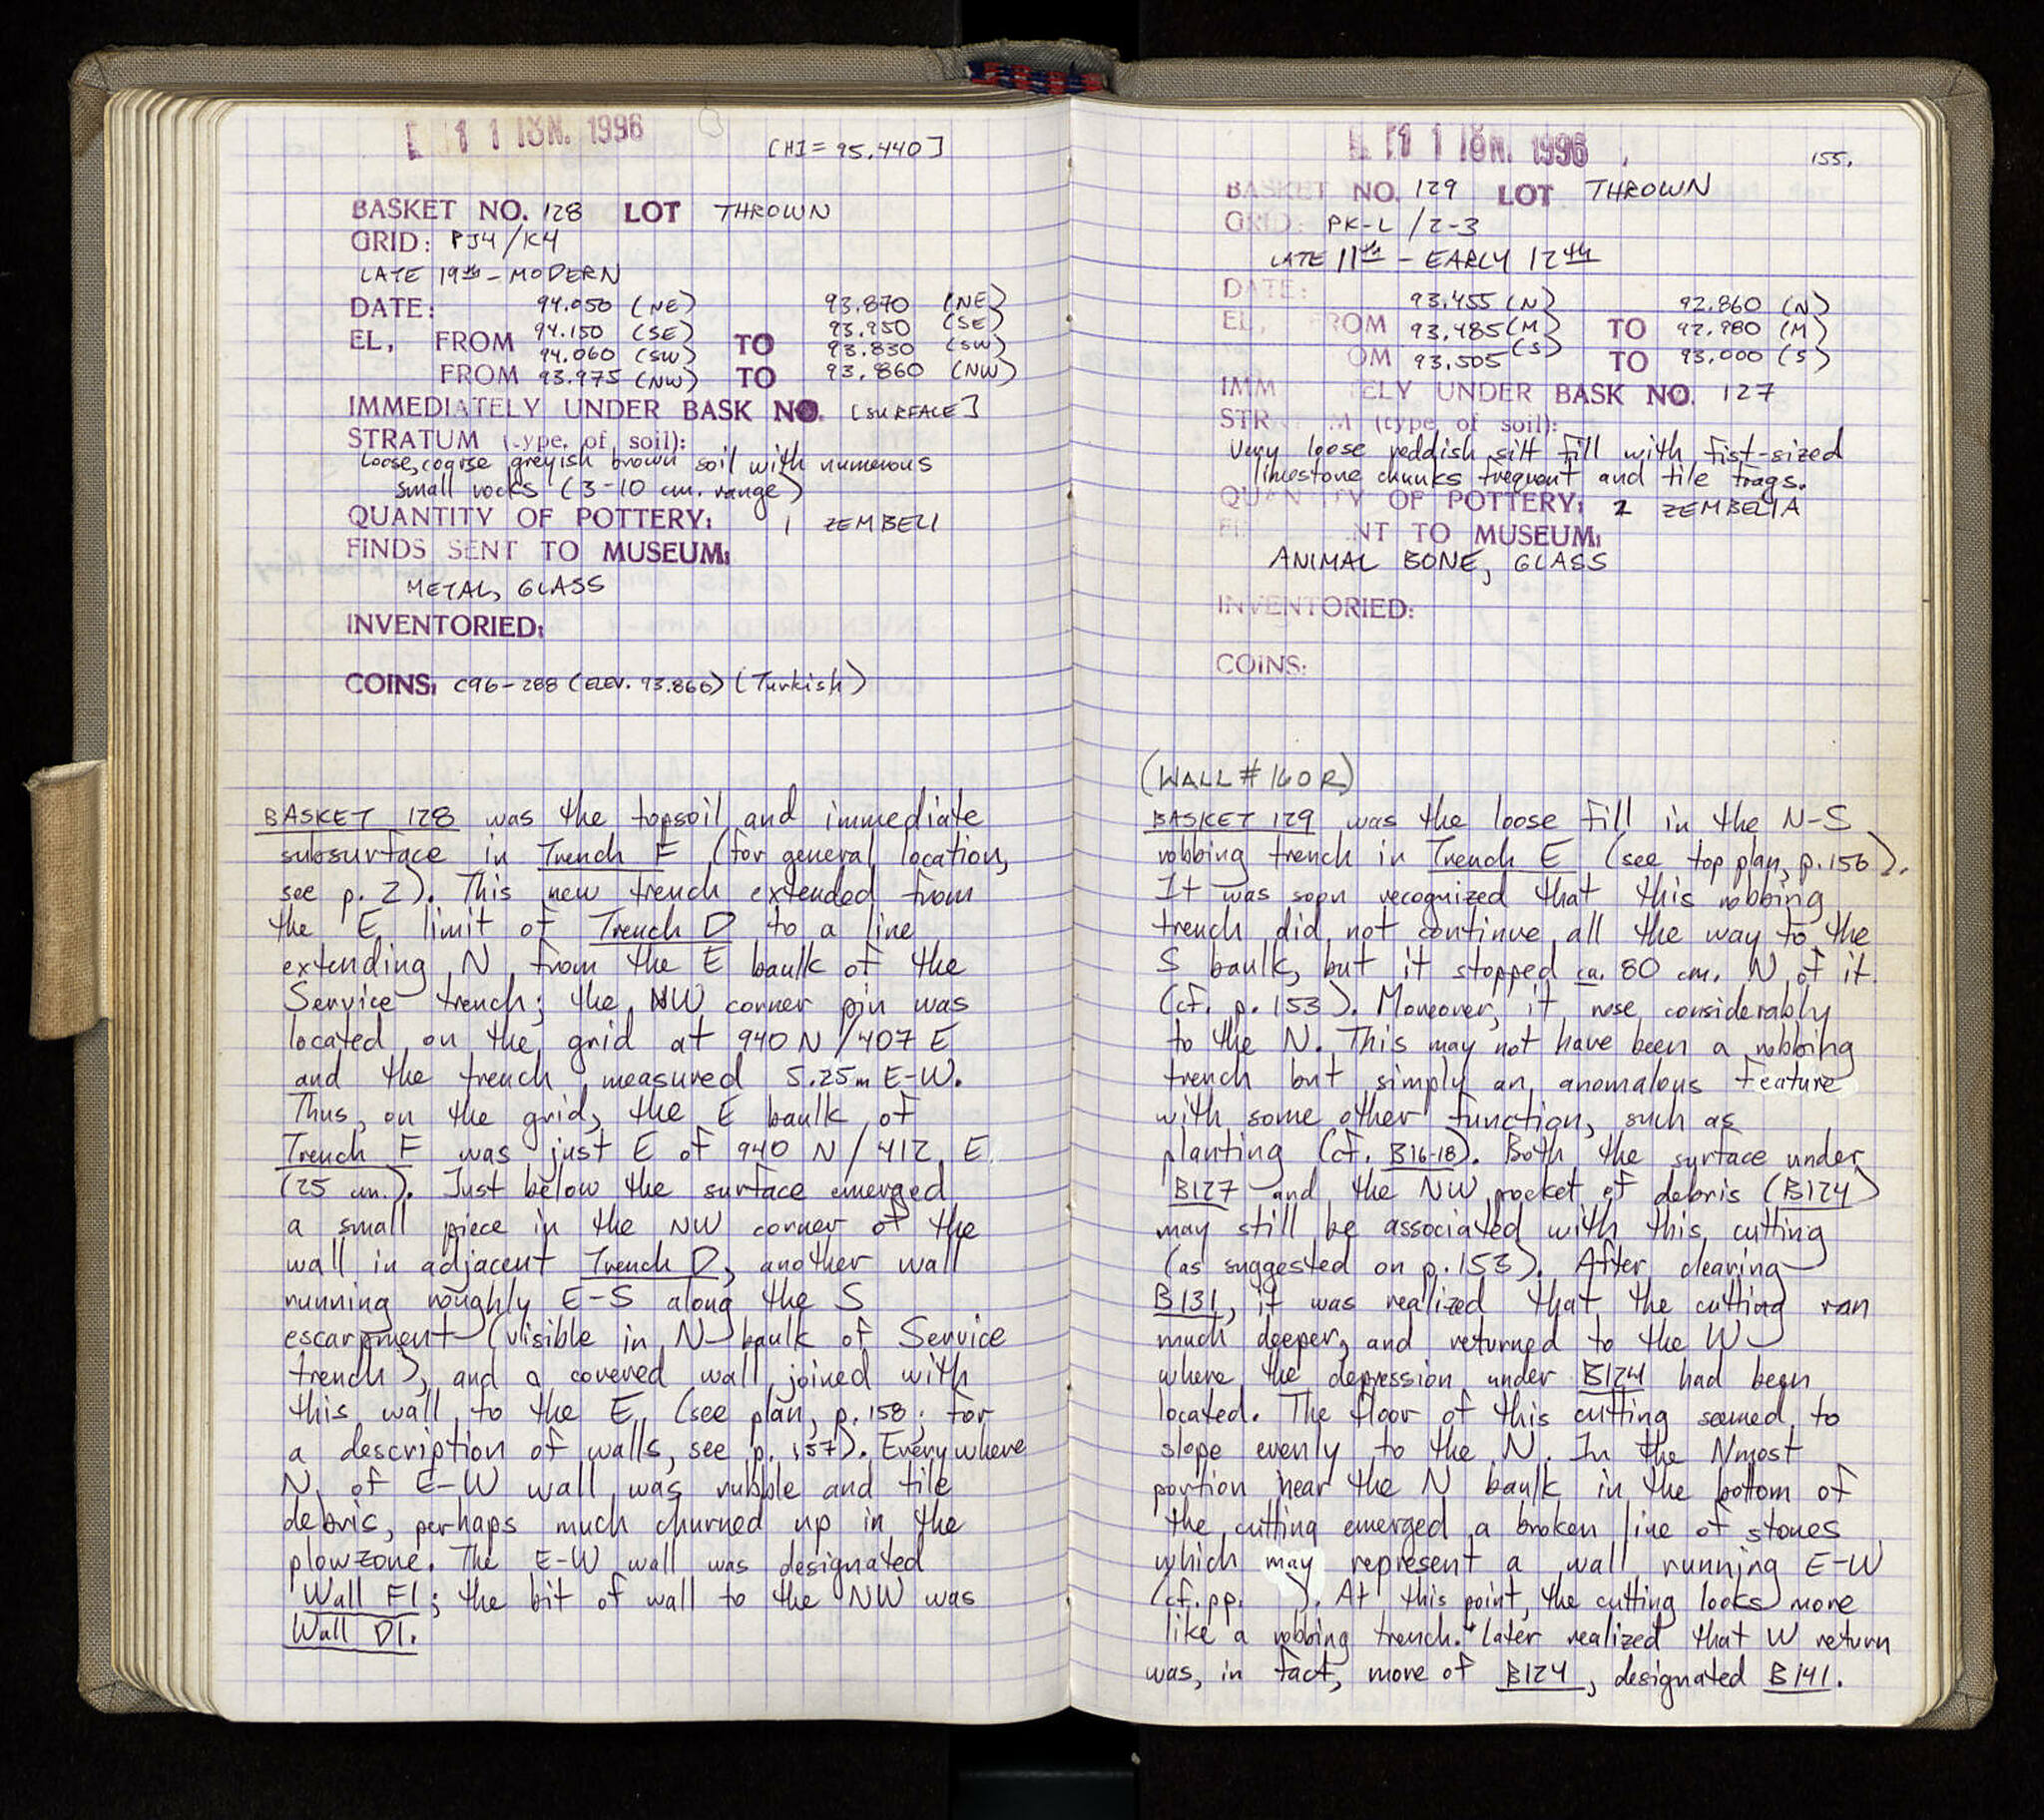 11 ΙΟΥΝ. 1996
[HI = 95.440]
BASKET NO. 128 LOT THROWN
GRID: PJ4/K4
LATE 19th - MODERN
DATE: 94.050 (NE) 93.870 (NE)
EL, FROM 94.150 (SE) TO 93.950 (SE)
94.060 (SW) 93.830 (SW)
FROM 93.975 (NW) TO 93.860 (NW)
IMMEDIATELY UNDER BASK NO. [SURFACE]
STRATUM (type of soil):
loose, coarse greyish brown soil with numerous
small rocks (3-10 cm. range)
QUANTITY OF POTTERY: 1 ZEMBELI
FINDS SENT TO MUSEUM:
METAL, GLASS
INVENTORIED:
COINS: C96-288 (ELEV. 93.860) (Turkish)
BASKET 128 was the topsoil and immediate
subsurface in Trench F (for general location,
see p. 2). This new trench extended from
the E limit of Trench D to a line
extending N from the E baulk of the
Service trench; the NW corner pin was
located on the grid at 940 N/407 E
and the trench measured 5.25m E-W.
Thus, on the grid, the E baulk of
Trench F was just E of 940 N/412 E
(25 cm.). Just below the surface emerged
a small piece in the NW corner of the
wall in adjacent Trench D, another wall
running roughly E-S along the S
escarpment (visible in N baulk of Service
trench), and a covered wall joined with
this wall to the E (see plan, p. 158; for
a description of walls, see p. 157). Everywhere
N of E-W wall was rubble and tile
debris, perhaps much churned up in the
plowzone. The E-W wall was designated
Wall F1; the bit of wall to the NW was
Wall D1.
11 ΙΟΥΝ. 1996
155.
BASKET NO. 129 LOT THROWN
GRID: PK-L /2-3
LATE 11th - EARLY 12th
DATE: 93.455 (N) 92.860 (N)
EL, FROM 93.485 (M) TO 92.980 (M)
OM 93.505 (S) TO 93.000 (S)
IMM TELY UNDER BASK NO. 127
STR M (type of soil):
Very loose reddish silt fill with fist-sized
limestone chunks frequent and tile frags.
QUAN TY OF POTTERY: 2 ZEMBELIA
FI NT TO MUSEUM:
ANIMAL BONE, GLASS
INVENTORIED:
COINS:
(WALL # 160 R)
BASKET 129 was the loose fill in the N-S
robbing trench in Trench E (see top plan, p. 156).
It was soon recognized that this robbing
trench did not continue all the way to the
S baulk, but it stopped ca. 80 cm. N of it
(cf. p. 153). Moreover, it rose considerably
to the N. This may not have been a robbing
trench but simply an anomalous feature
with some other function, such as
planting (cf. B16-18). Both the surface under
B127 and the NW pocket of debris (B124)
may still be associated with this cutting
(as suggested on p. 153). After clearing
B131, it was realized that the cutting ran
much deeper, and returned to the W
where the depression under B124 had been
located. The floor of this cutting seemed to
slope evenly to the N. In the Nmost
portion near the N baulk in the bottom of
the cutting emerged a broken line of stones
which may represent a wall running E-W
(cf. pp. ). At this point, the cutting looks more
like a robbing trench. *Later realized that W return
was, in fact, more of B124, designated B141.